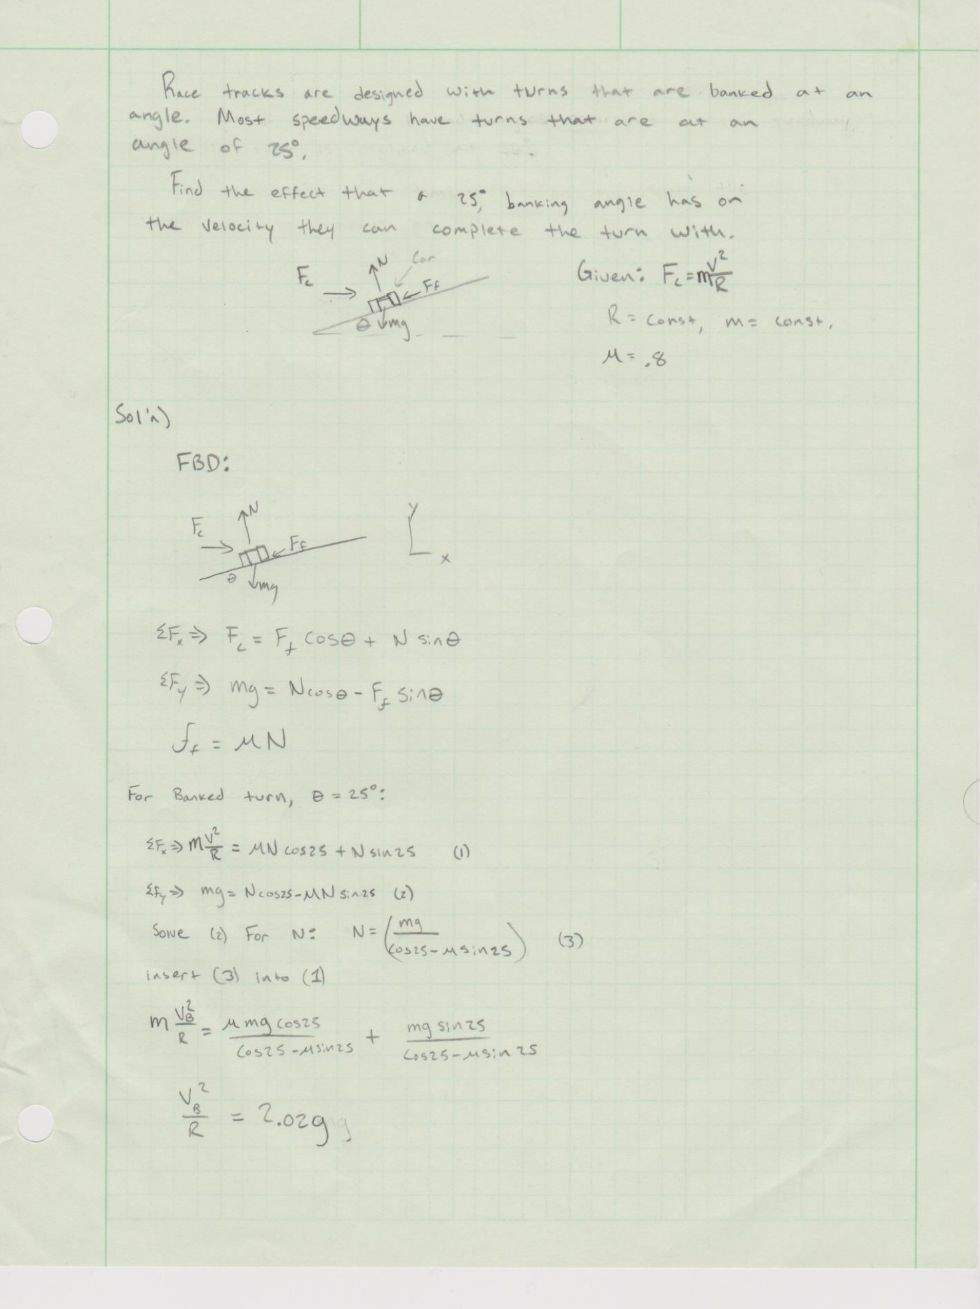 Race tracks are designed with turns that are banked at an
angle. Most speedways have turns that are at an
angle of 25°.
Find the effect that a 25° banking angle has on
the velocity they can complete the turn with.
F_c N Car F_f θ mg
Given: F_c = m V²/R
R = const, m = const.
μ = .8
Sol'n)
FBD:
F_c N F_f θ mg y x
ΣF_x ⇒ F_c = F_f cosθ + N sinθ
ΣF_y ⇒ mg = N cosθ - F_f sinθ
f_f = μN
For Banked turn, θ = 25°:
ΣF_x ⇒ m V²/R = μN cos25 + N sin25 (1)
ΣF_y ⇒ mg = N cos25 - μN sin25 (2)
Solve (2) For N: N = (mg / cos25 - μ sin25) (3)
insert (3) into (1)
m V_B²/R = μ mg cos25 / cos25 - μ sin25 + mg sin25 / cos25 - μ sin25
V_B²/R = 2.02g